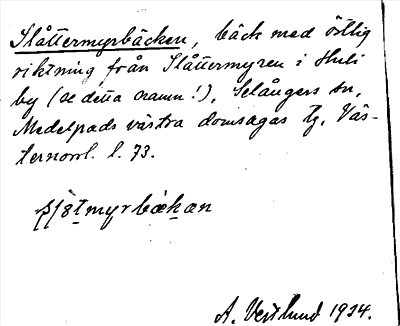 Slåttermyrbäcken, bäck med östlig
riktning från Slåttermyren i Huli
by (se detta namn!), Selångers sn,
Medelpads västra domsagas tg, Väs-
ternorrl. l. 73.
myrbäkan
A. Vestlund 1934.